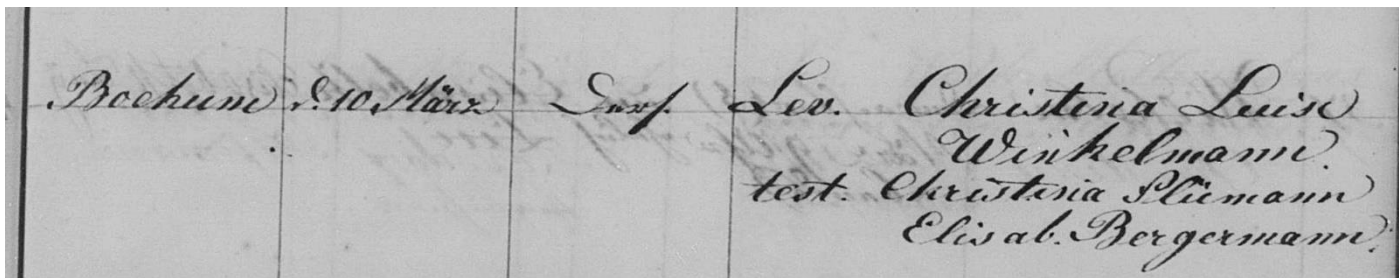 Bochum d. 10 März Ders. Lev. Christina Luise
Winkelmann.
test. Christina Plümann
Elisab. Bergermann.